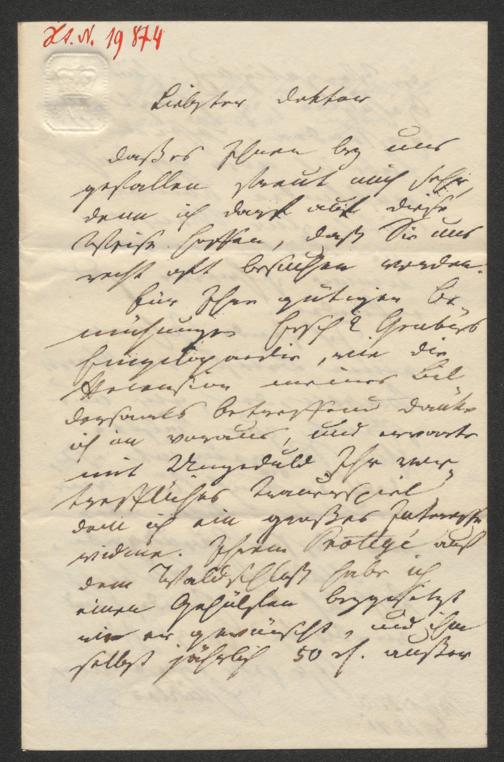 H.I.N. 19 874
Liebster Doktor
daß es Ihnen bey uns
gefallen freut mich sehr,
denn ich darf auf diese
Weise hoffen, daß Sie uns
recht oft besuchen werden.
Für Ihre gütigen Be-
mühungen Ersch & Grubers
Encyclopaedie, wie die
Recension meines Bil
dersaals betreffend danke
ich im voraus, und erwarte
mit Ungeduld Ihr vor-
treffliches Trauerspiel
dem ich ein großes Interesse
widme. Ihrem Protegé auf
dem Waldschloß habe ich
einen Gehülfen beygesetzt
wie er gewünscht, und ihm
selbst jährlich 50 rh. außer